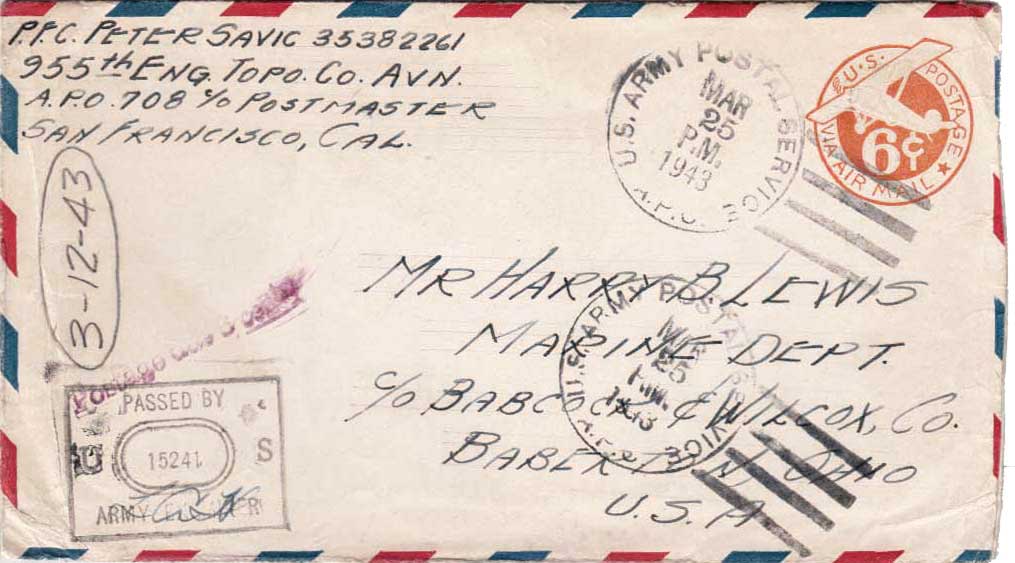 P.F.C. PETER SAVIC 35382261
955th ENG. TOPO. CO. AVN.
A.P.O. 708 c/o POSTMASTER
SAN FRANCISCO, CAL.
3-12-43
U.S. ARMY POSTAL SERVICE
MAR
25
P.M.
1943
A.P.O.
U.S. POSTAGE
6¢
VIA AIR MAIL
MR HARRY B. LEWIS
MARINE DEPT.
c/o BABCOCK & WILCOX, CO.
BABERTON, OHIO
U.S.A
U.S. ARMY POSTAL SERVICE
25
P.M.
1943
A.P.O.
Postage due
PASSED BY
U 15241 S
ARMY